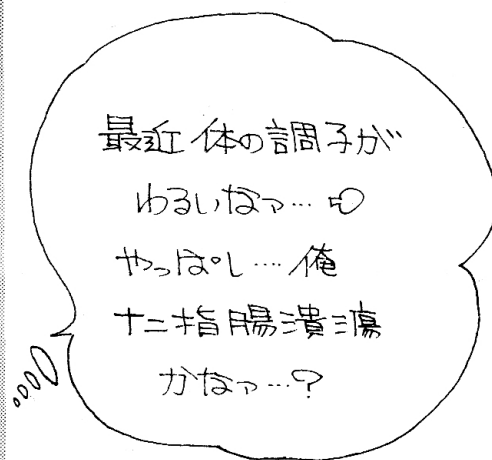 最近体の調子が
わるいなァ…
やっぱし…俺
十二指腸潰瘍
かなァ…?